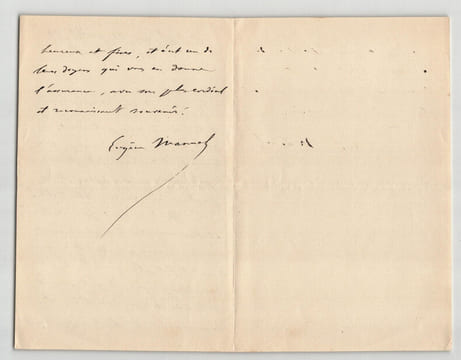 heureux et fiers, et c'est un de
leurs doyens qui vous en donne
l'assurance, avec son plus cordial
et reconnaissant souvenir.
Eugène Manuel